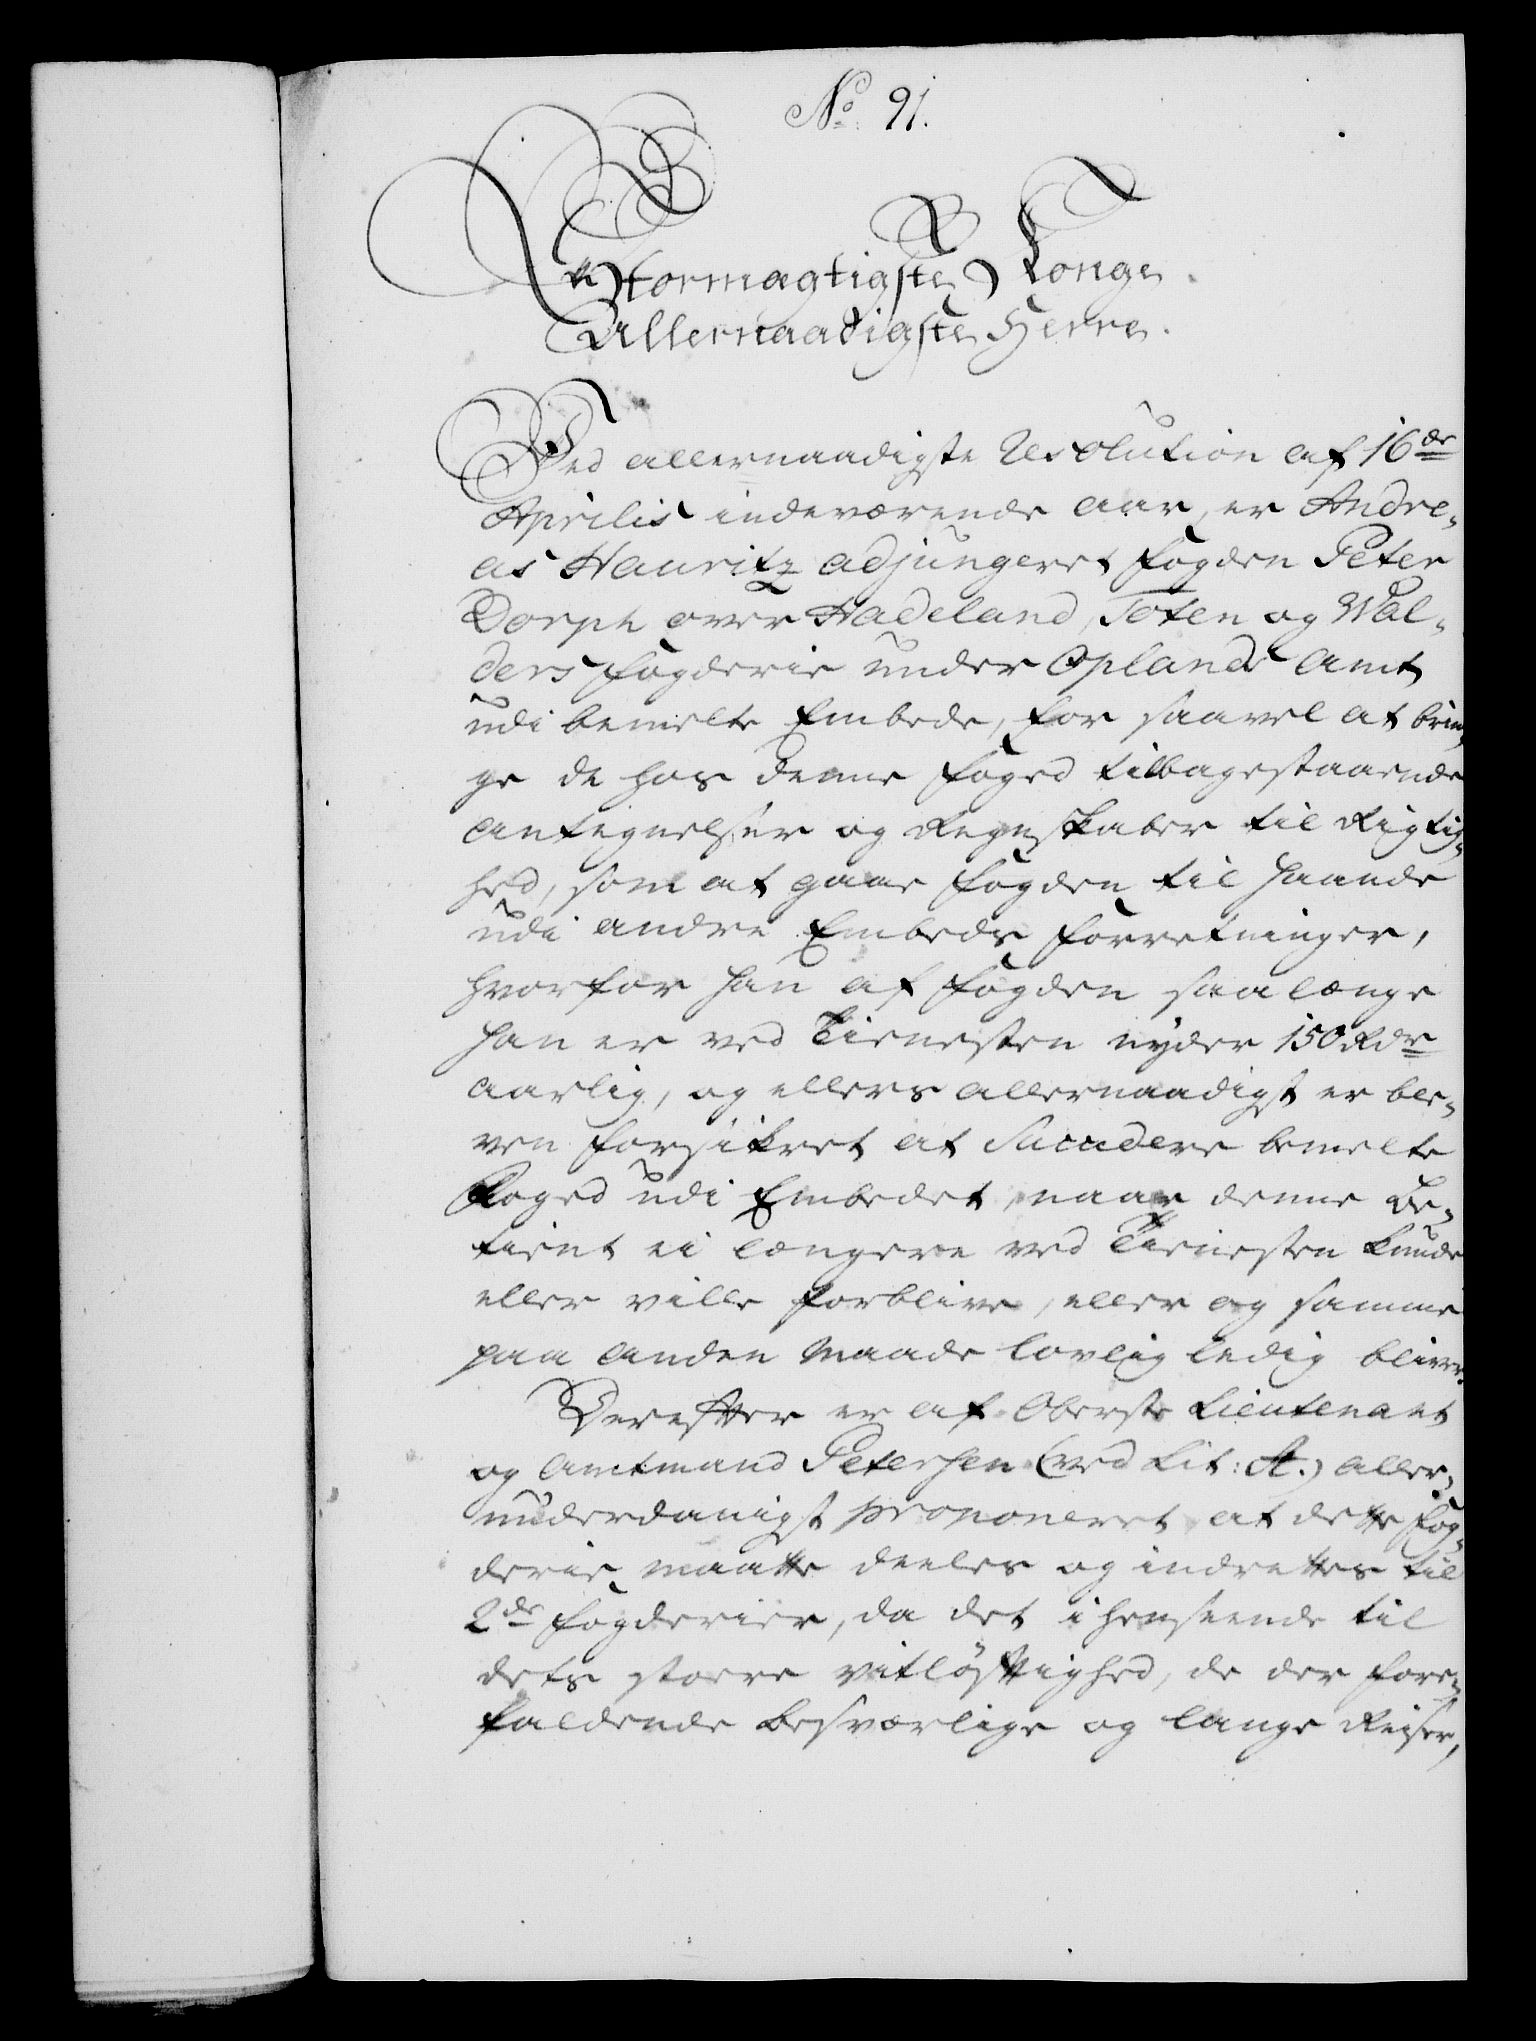 No 91.
Stormægtigste Konge
Allernaadigste Herre.
Ved allernaadigste Resolution af 16de
Aprilis indeværende aar, er Andre-
as Hauritz adjungeret Fogden Peter
Dorph over Hadeland, Toten og Wal-
ders Fogderie under Oplands Amt
udi bemelte Embede, for saavel at brin-
ge de hos denne Foged tilbagestaaende
Antegnelser og Regnskaber til Rigtig-
hed, som at gaae Fogden til haande
udi andre Embeds Forretninger,
hvorfor han af Fogden saalænge
han er ved Tienesten nyder 150 Rdr
aarlig, og ellers allernaadigst er ble-
ven forsikret at Succedere bemelte
Foged udi Embedet, naar denne Be-
tient ei længere ved Tienesten kunde
eller ville forblive, eller og samme
paa anden Maade lovlig ledig bliver.
Derefter er af Oberste Lieutenant
og Amtmand Petersen (ved Lit: A.) aller-
underdanigst proponeret at dette Fog-
derie maatte deeles og indrettes til
2de Fogderier, da det i henseende til
dets store vitløftighed, de der fore-
faldende besværlige og lange Reiser,